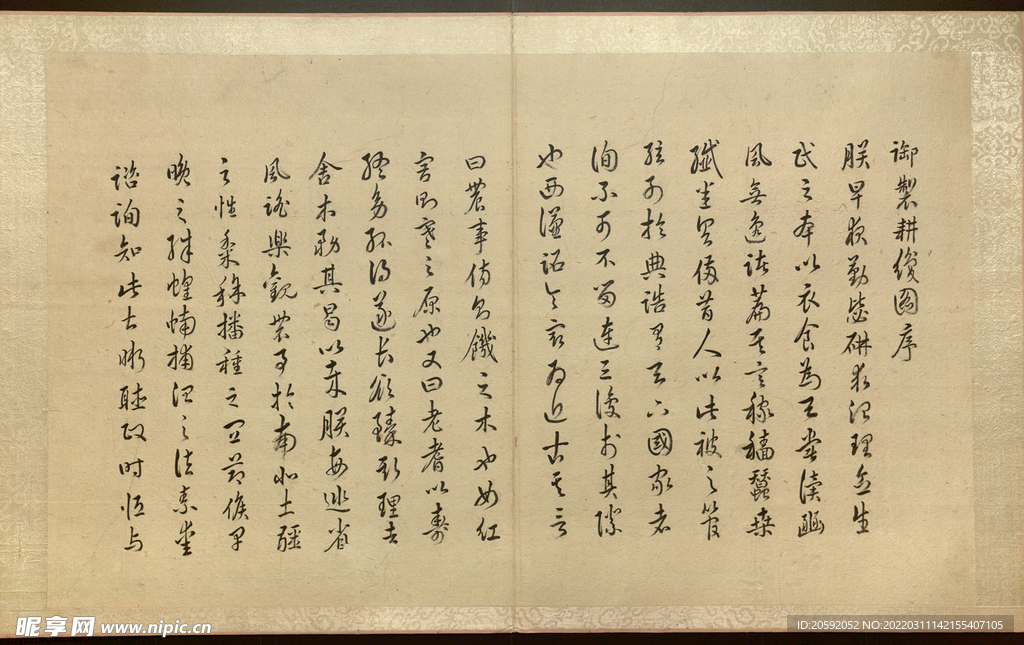 御製耕織圖序
朕早夜勤毖研求治理念生
民之本以衣食為天嘗讀豳
風無逸諸篇其言稼穡蠶桑
纖悉具備昔人以此被之管
弦列於典誥有天下國家者
洵不可不留連三復於其際
也西漢詔令最為近古其言
曰農事傷則饑之本也女紅
害則寒之原也又曰老耆以壽
終幼孤得遂長欲臻斯理者
舍本務其曷以哉朕每巡省
風謠樂觀農事於南北土疆
之性黍稌播種之宜節候早
晚之殊蝗蝻捕治之法素愛
諮詢知此甚晰聽政時恒與
昵享网 www.nipic.cn
ID:20592052 NO:20220311142155407105